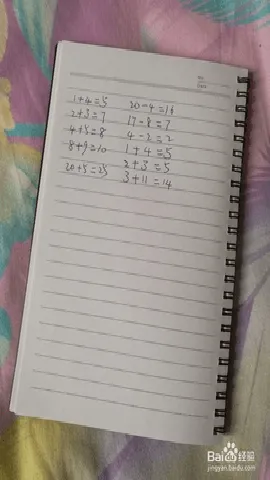 1+4=5
2+3=7
4+5=8
8+9=10
20+5=25
20-4=16
17-8=7
4-2=2
1+4=5
2+3=5
3+11=14
Baidu 经验
jingyan.baidu.com